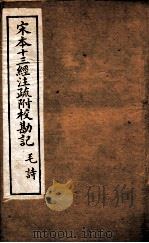 宋本十三經注疏附挍勘記
毛詩